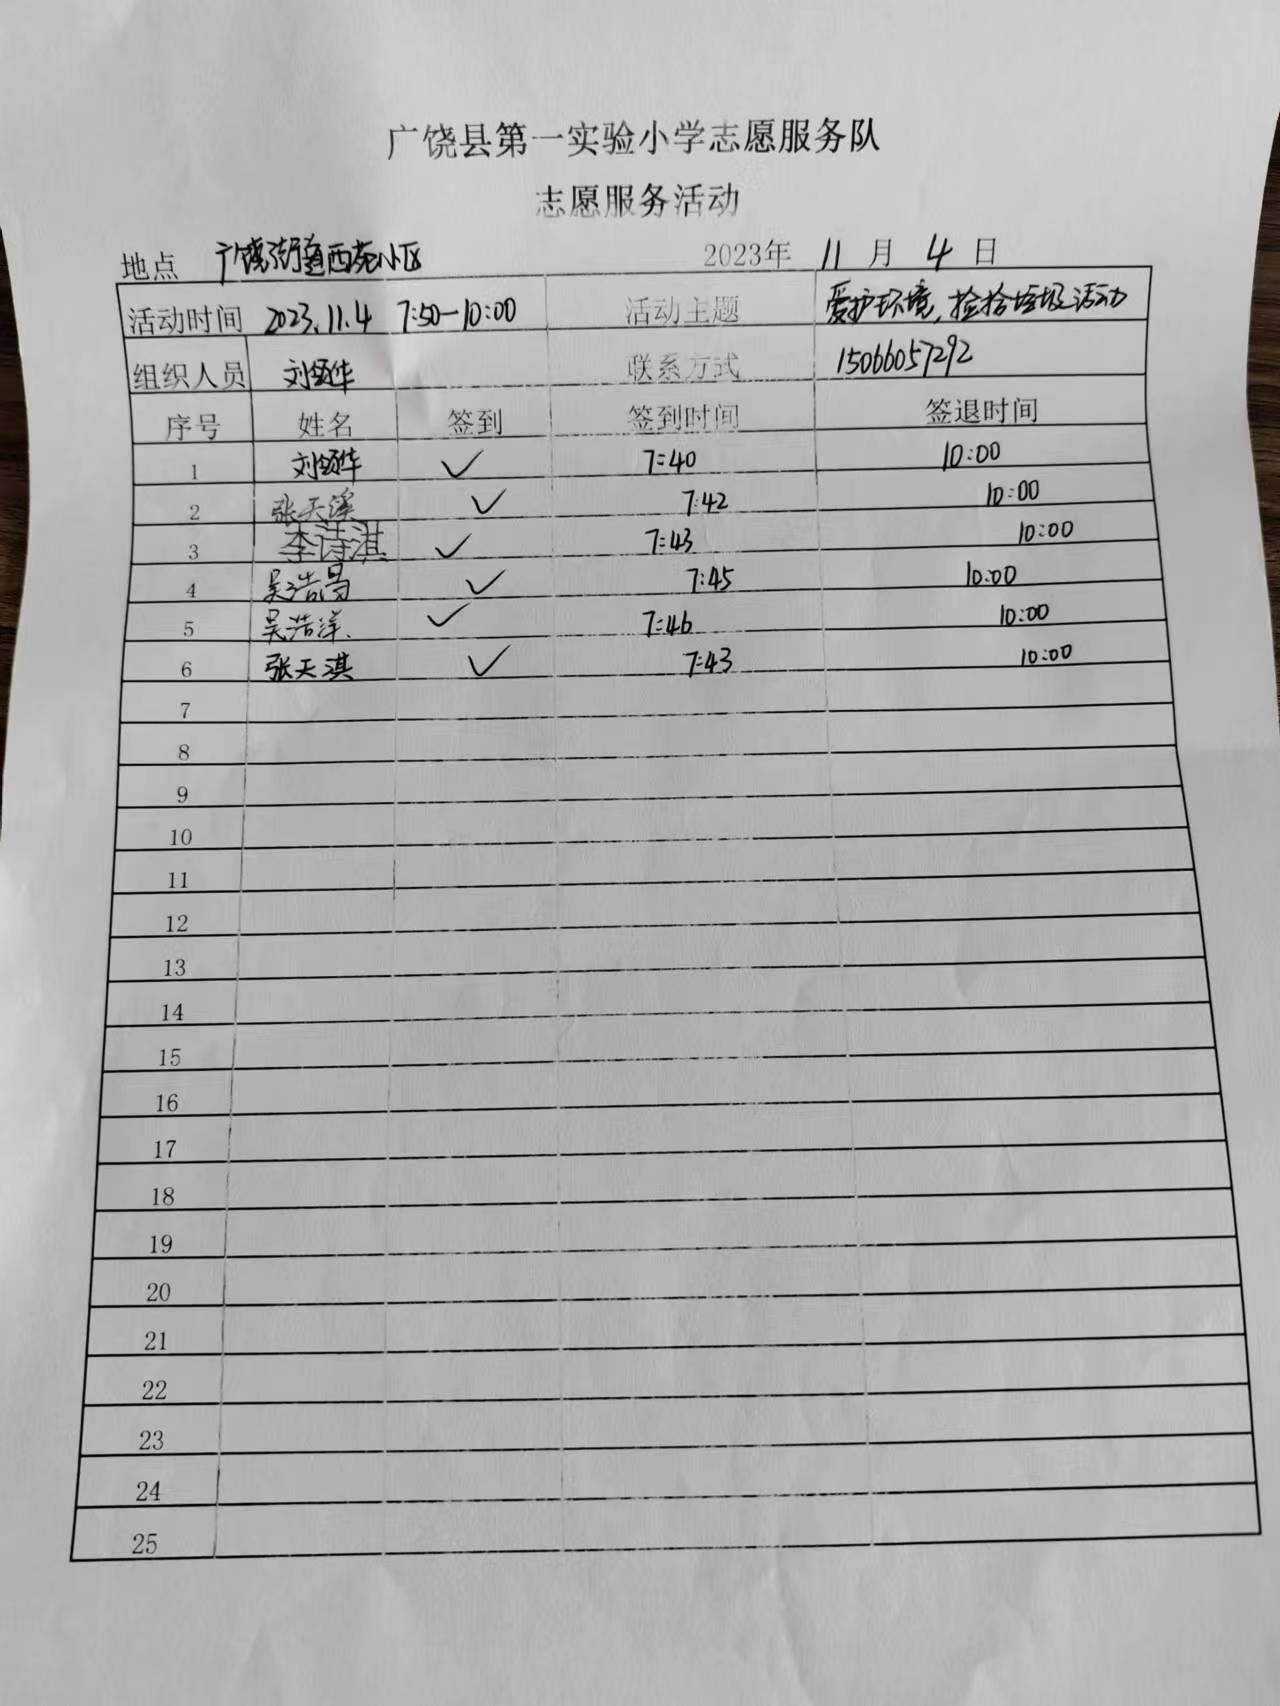 广饶县第一实验小学志愿服务队
志愿服务活动
地点 广饶街道西苑小区 2023年 11 月 4 日
活动时间 2023.11.4 7:50-10:00 活动主题 爱护环境,捡拾垃圾活动
组织人员 刘领华 联系方式 15066057292
序号 姓名 签到 签到时间 签退时间
1 刘领华 ✓ 7:40 10:00
2 张天溪 ✓ 7:42 10:00
3 李诗淇 ✓ 7:43 10:00
4 吴浩昌 ✓ 7:45 10:00
5 吴浩洋 ✓ 7:46 10:00
6 张天淇 ✓ 7:43 10:00
7
8
9
10
11
12
13
14
15
16
17
18
19
20
21
22
23
24
25